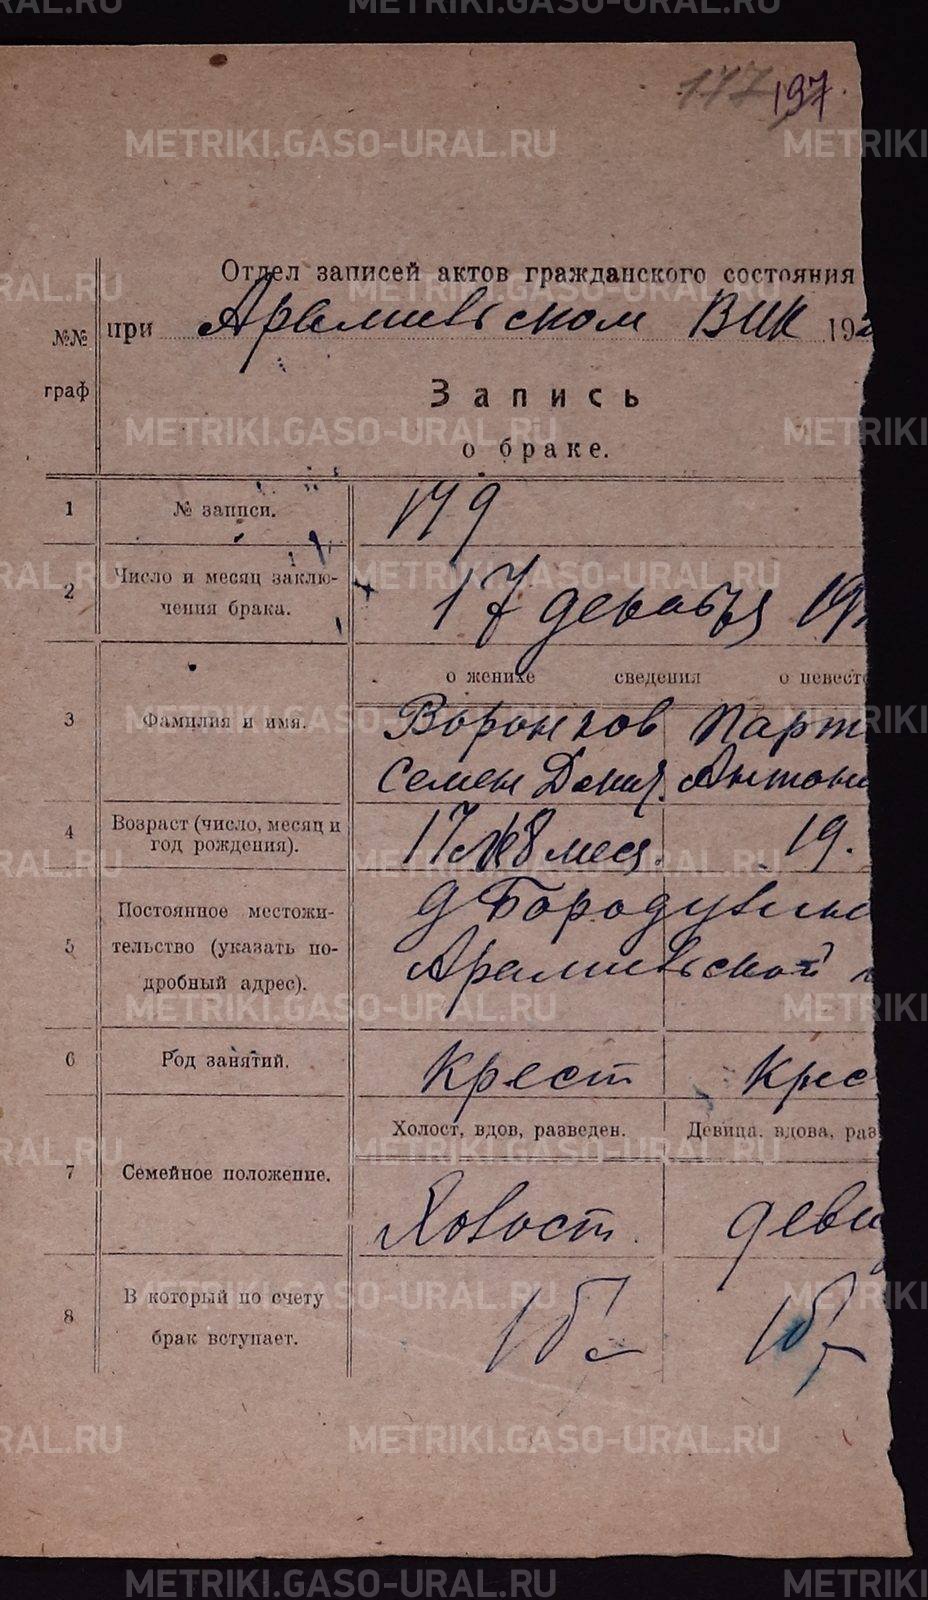 METRIKI.GASO-URAL.RU
177 197.
Отдел записей актов гражданского состояния
при Арамильском ВИК 192
№№ граф
Запись
о браке.
1 № записи. 179
2 Число и месяц заключения брака. 17 декабря 19
о женихе сведения о невесте
3 Фамилия и имя. Воронков Парт
Семен Данил. Антони
4 Возраст (число, месяц и год рождения). 17 л 8 меся. 19.
5 Постоянное местожи-
тельство (указать по-
дробный адрес).
д Бородулин
Арамильской
6 Род занятий. Крест Крес
Холост, вдов, разведен. Девица, вдова, раз
7 Семейное положение. Холост. деви
8 В который по счету
брак вступает.
1б 1б